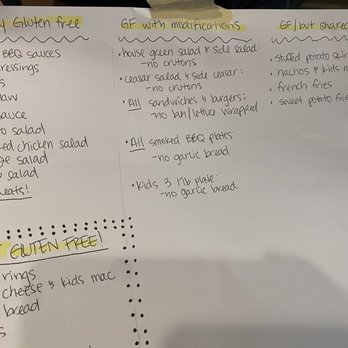 y Gluten free
BBQ sauces
ressings
s
aw
auce
o salad
ed chicken salad
ge salad
o salad
eats!
GF with modifications
• house green salad & side salad:
-no crutons
• ceasar salad & side ceasar:
-no crutons
• All sandwiches & burgers:
-no bun/lettuce wrapped
• All smoked BBQ plates:
-no garlic bread
• Kids 3 rib plate:
-no garlic bread
GF/but shared
• stuffed potato skin
• nachos & kids n
• french fries
• sweet potato frie
GLUTEN FREE!
rings
cheese & kids mac
bread
s